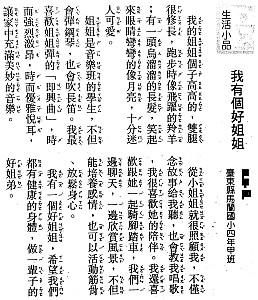 生活小品
我有個好姐姐
臺東縣馬蘭國小四年甲班
我的姐姐個子高高的，雙腿
很修長，跑步時像飛躍的羚羊
；有一頭烏溜溜的長髮，笑起
來眼睛彎彎的像月亮，十分迷
人可愛。
姐姐是音樂班的學生，不但
會彈鋼琴，也會吹長笛。我最
喜歡姐姐彈的「即興曲」，時
而強烈激昂，時而優雅悅耳，
讓家中充滿美妙的音樂。
從小姐姐就很照顧我，不但
念故事給我聽，也會教我唱歌
，我喜歡她的陪伴。我還喜
歡跟她一起騎腳踏車，我們一
邊聊天，一邊欣賞風景，不但
能培養感情，也可以活動筋骨
、放鬆身心。
我有一個好姐姐，希望我們
都有健康的身體，做一輩子的
好姐弟。